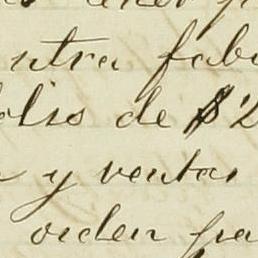 ntra fab
olis de $2
y ventas
orden pa